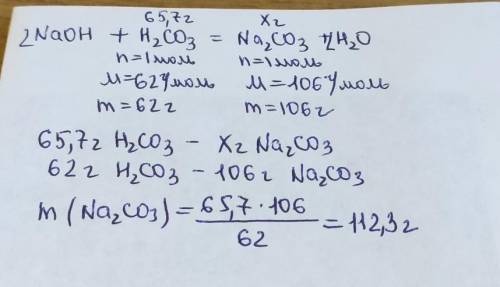 65,7г хг
2NaOH + H₂CO₃ = Na₂CO₃ + 2H₂O
n=1моль n=1моль
M=62г/моль M=106г/моль
m=62г m=106г
65,7г H₂CO₃ – хг Na₂CO₃
62г H₂CO₃ – 106г Na₂CO₃
m(Na₂CO₃) = 65,7·106 / 62 = 112,3г